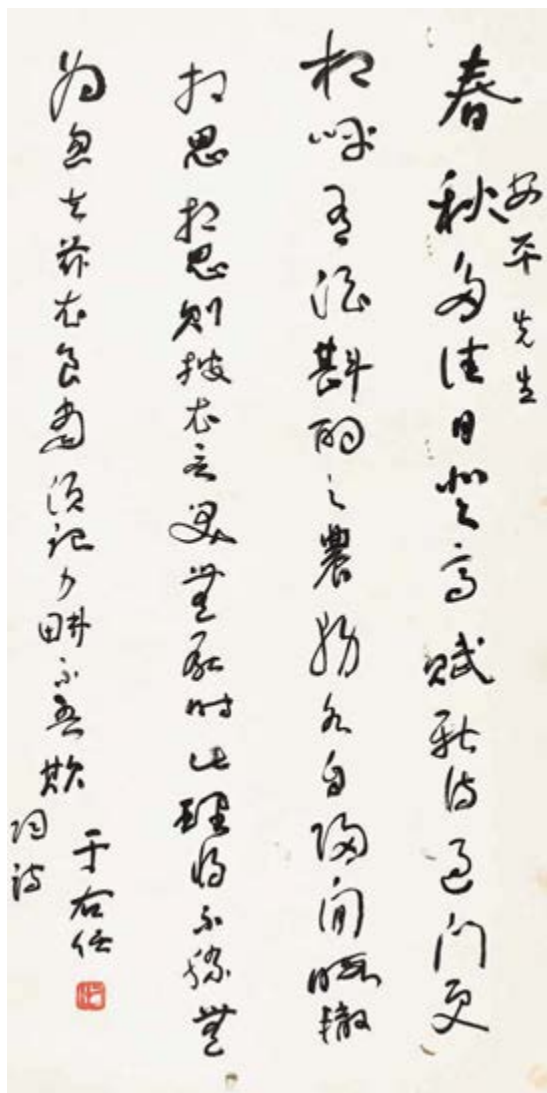 安平先生
春秋多佳日登高賦新詩過門更
相呼有酒斟酌之農務各自歸閒暇輒
相思相思則披衣言笑無厭時此理將不勝無
為忽去茲衣食當須記力耕不吾欺
陶詩
于右任